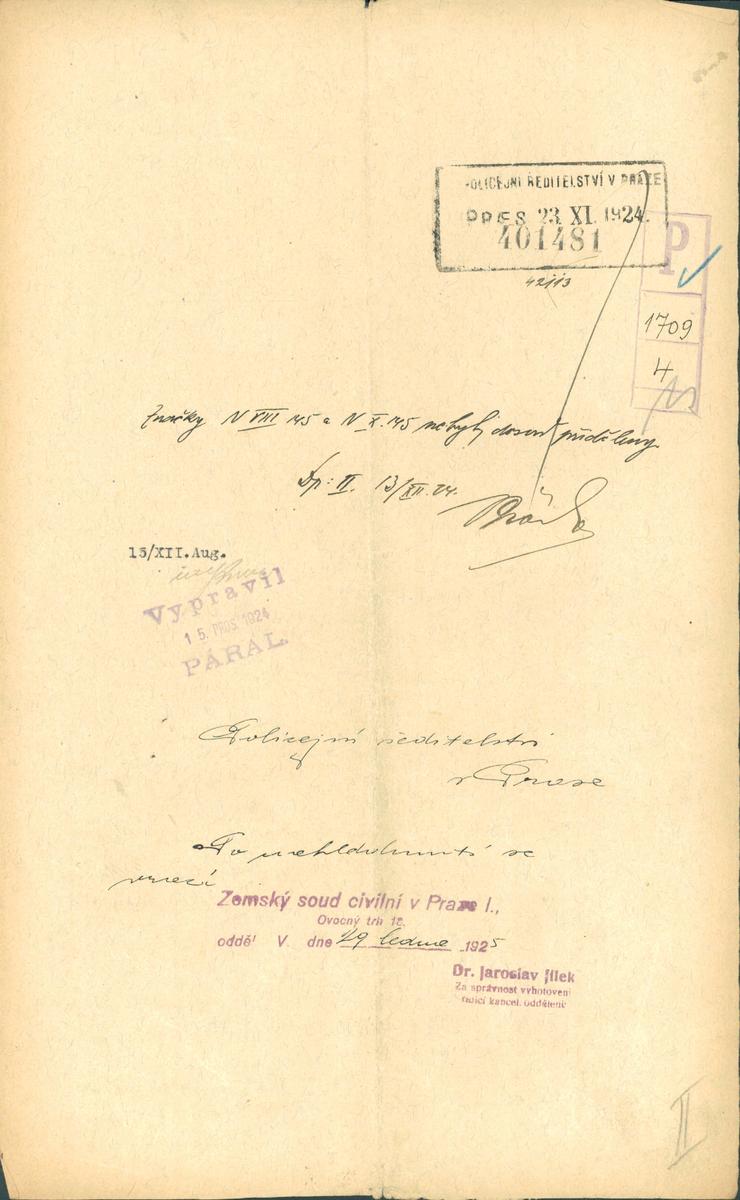 POLICEJNÍ ŘEDITELSTVÍ V PRAZE
PRES 23 XI. 1924.
401481
42113
P
1709
4
Značky N VIII 745 a N X. 745 nebyly dosud přiděleny
Dp: II. 13/XII. 24.
15/XII. Aug.
Vypravil
15. PROS. 1924
PÁRAL.
Policejní ředitelství
v Praze
Po nahlédnutí se
vrací
Zemský soud civilní v Praze I.,
Ovocný trh 12.
odděl V dne 29 ledna 1925
Dr. Jaroslav Jílek
Za správnost vyhotovení
řídící kancel. oddělení:
II